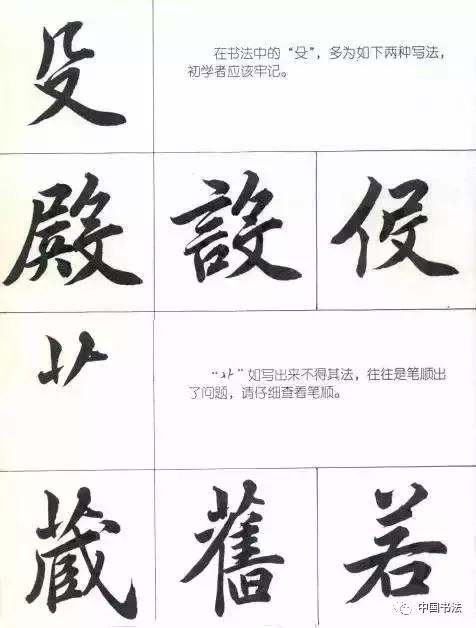 殳
在书法中的“殳”，多为如下两种写法，
初学者应该牢记。
殿 設 役
艹
“艹”如写出来不得其法，往往是笔顺出
了问题，请仔细查看笔顺。
蔵 舊 若
中国书法